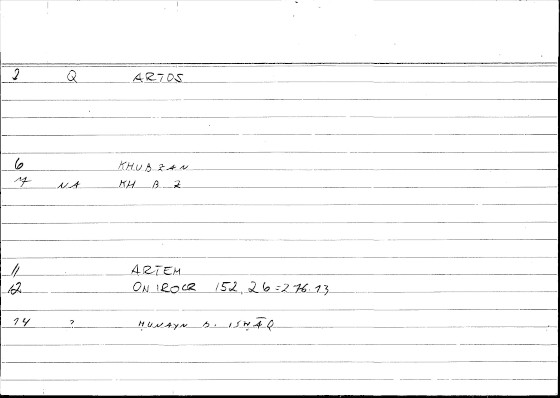 2 Q ARTOS
6 KHUBZAN
7 NA KH B Z
11 ARTEM
12 ONIROCR 152,26=276.13
14 ? ḤUNAYN B. ISḤĀQ